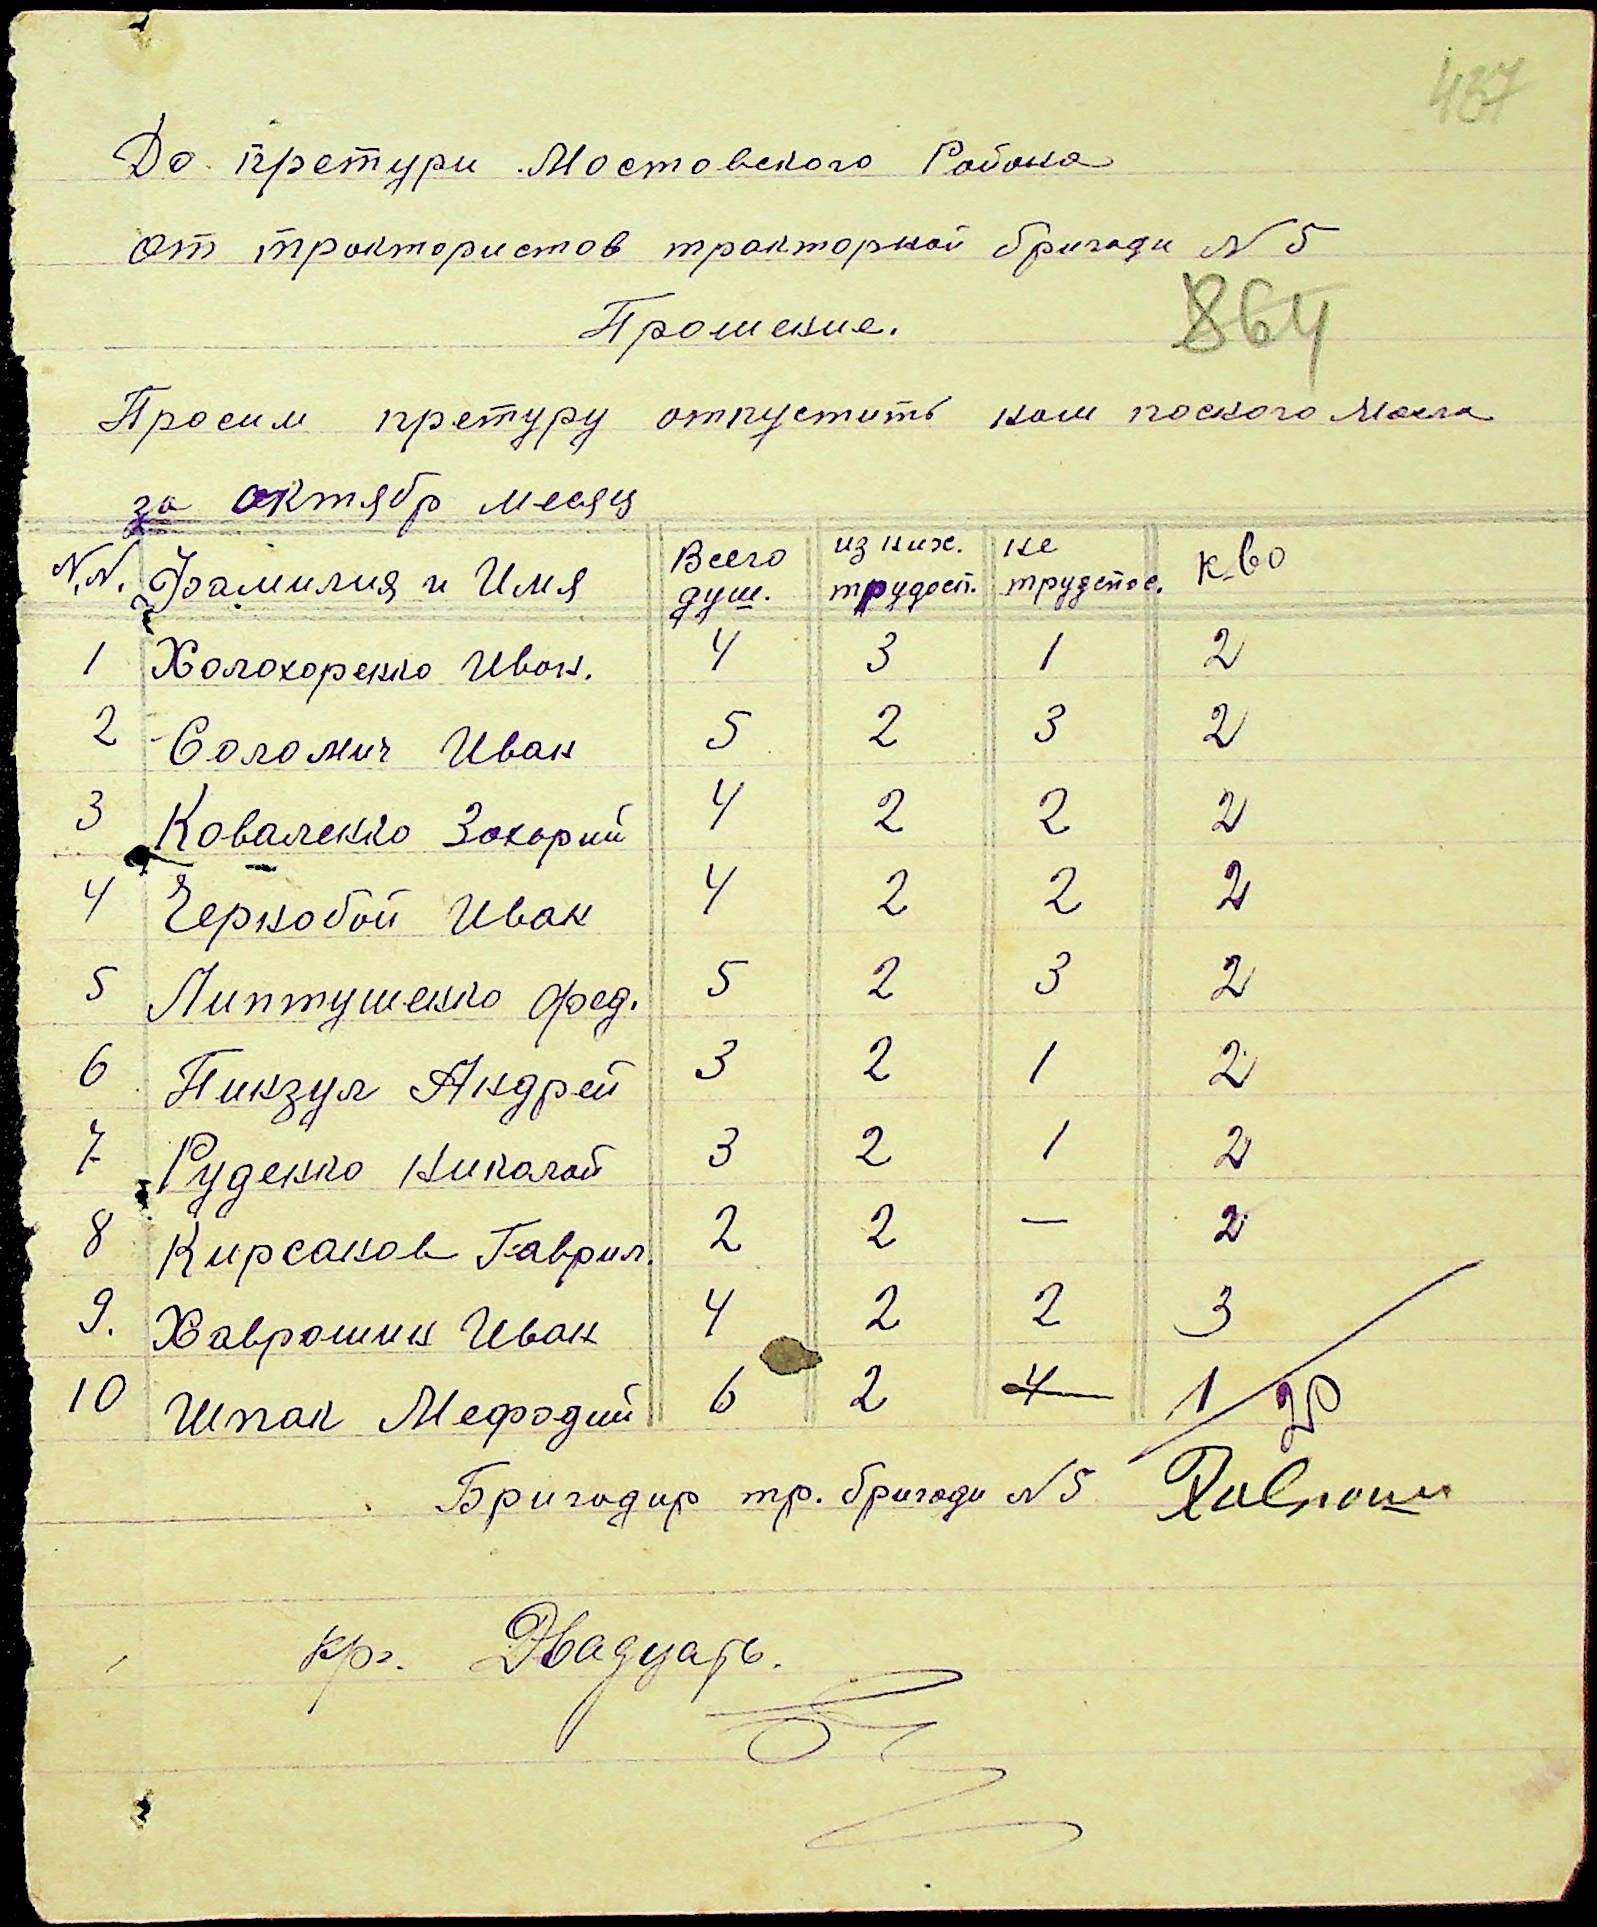 437
До претури Мостовского Району
от трактористов тракторной бригади N 5
Прошение.
864
Просим претуру отпустить нам поского Масла
за октябр месяц
N.N. Фамилия и Имя Всего душ. из них. трудосп. не трудспос. к-во
1 Холохоренко Иван. 4 3 1 2
2 Соломич Иван 5 2 3 2
3 Коваленко Захорий 4 2 2 2
4 Чернобой Иван 4 2 2 2
5 Липтушенко Фед. 5 2 3 2
6 Пинзул Андрей 3 2 1 2
7 Руденко Николай 3 2 1 2
8 Кирсанов Гаврил. 2 2 — 2
9. Хаврошин Иван 4 2 2 3
10 Шпак Мефодий 6 2 4 1 20
Бригадир тр. бригади N 5 Хавроши
кг. Двадцать.